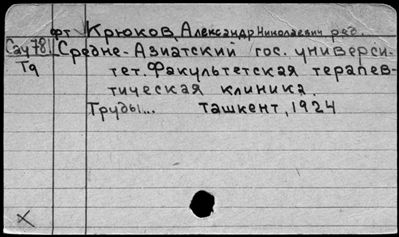 фт Крюков, Александр Николаевич ред.
Сау78 Средне-Азиатский гос. универси-
Т9 тет. Факультетская терапев-
тическая клиника.
Труды... Ташкент, 1924
X